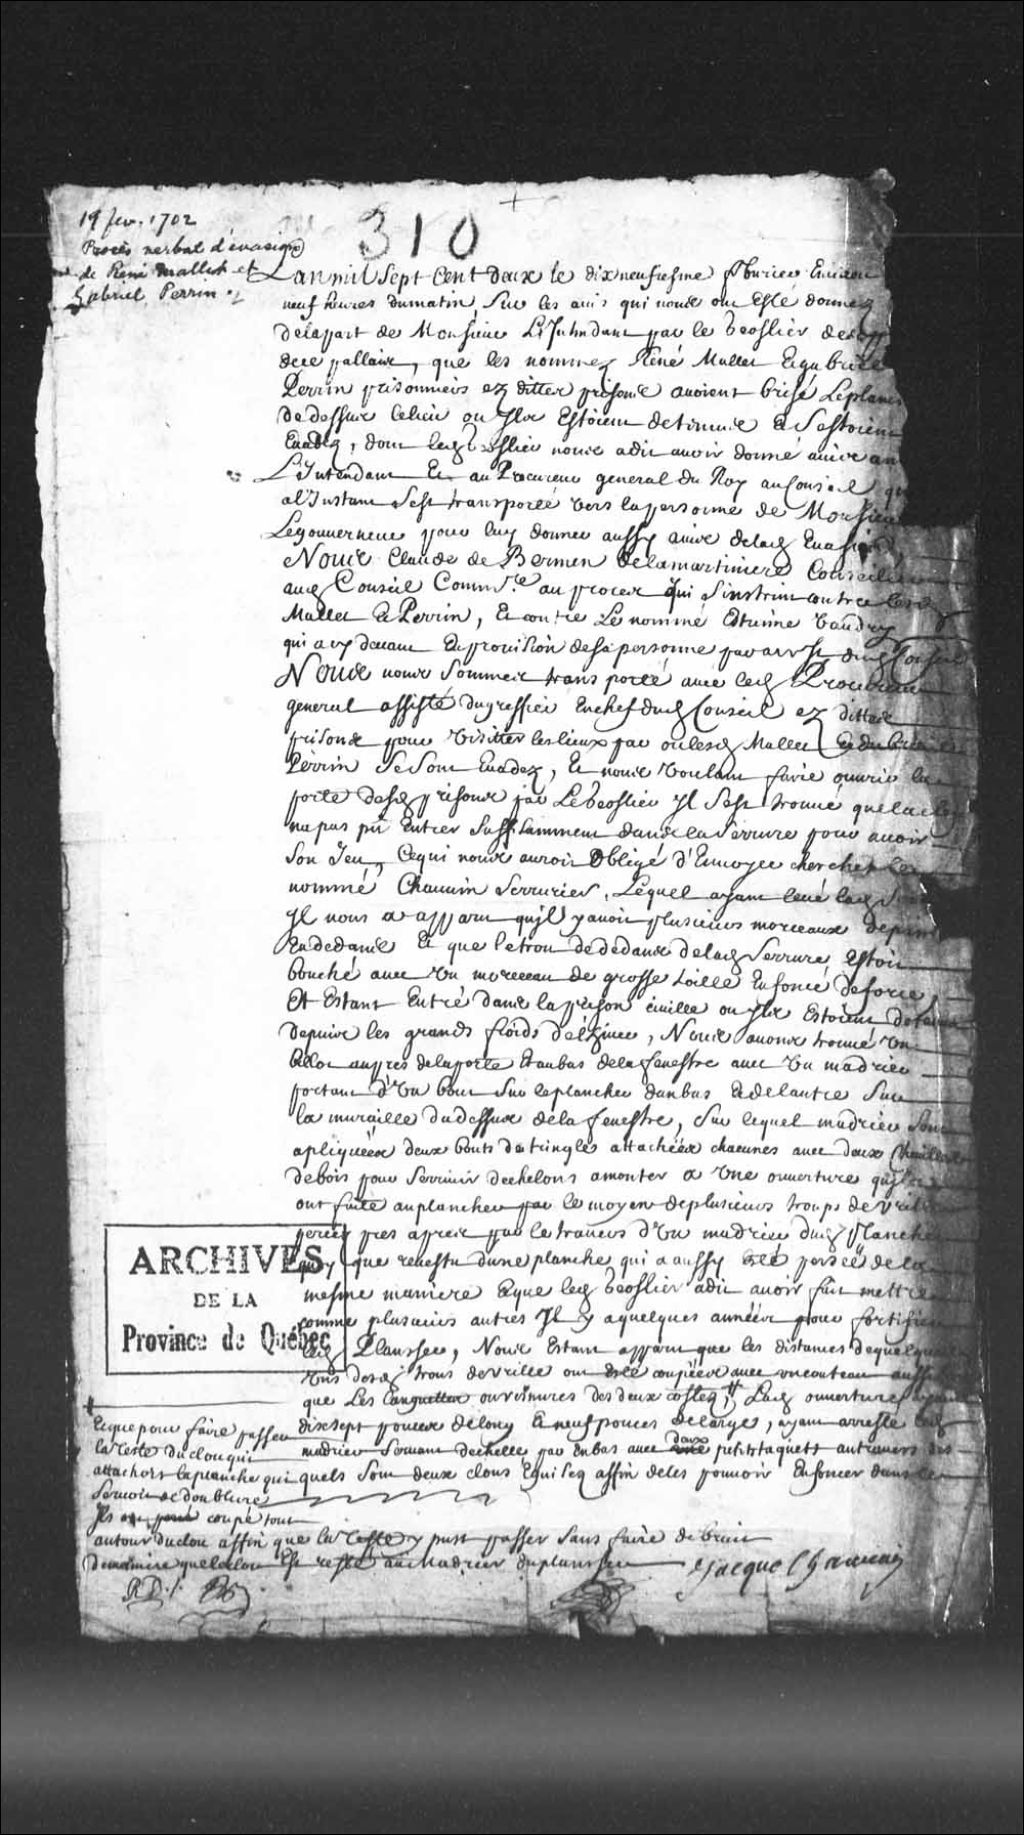 310
19 fev. 1702
Procès verbal d'evasion
de René Mallet et
Gabriel Perrin
Lan mil Sept Cent deux le dixneufiesme febvrier Environ
neuf heures dumatin, Sur les avis qui nous ont Esté donnez
delapart de Monsieur L'Intendant par le Geoslier des
dece pallais, que les nommez René Mallet Et gabriel
Perrin prisonniers ez dittes prisons avoient brisé Leplancher
de dessus celieu ou Ils Estoient detenus Et Sestoient
Evadez, dont led Geoslier nous adit avoir donné avis a
L'Intendant Et au Procureur general du Roy auConseil qui
al'Instant Sest transporté vers lapersonne de Monsieur
Legouverneur pour luy donner aussy avis delad Evasion
Nous Claude de Bermen delamartiniere Conseiller
aud Conseil Comm.re au procez qui Sinstruit contre lesd
Mallet Et Perrin, Et contre Le nommé Estienne Vaudry
qui a cy devant provision desa personne par arrest dud Conseil
Nous nous Sommes transporté avec led Procureur
general assisté dugreffier Enchef dud Conseil ez dittes
prisons pour visitter leslieux par oulesd Mallet Et Gabriel
Perrin Se Sont Evadez, Et nous voulant faire ouvrir la
porte desd prisons par LeGeoslier Il Sest trouvé quelaclef
napas pû Entrer Suffisamment dans la Serrure pour avoir
Son Jeu, Cequi nous auroit Obligé d'Envoyer chercher Le
nommé Chauvin Serrurier, Lequel ayant levé lad Serrure
Il nous a apparu quil y avoit plusieurs morceaux
Endedans Et que letrou dededans delad Serrure Estoit
bouché avec un morceau de grosse toille Enfoncé deforce,
Et Estant Entré dans laprison civille ou Ils Estoient detenus
depuis les grands froids delhiver, Nous avons trouvé un
billot aupres delaporte Et aubas dela fenestre avec un madrier
portant d'Un bout Sur leplancher danbas Et delautre Sur
la muraille dudessus dela fenestre, Sur lequel madrier Sont
apliquées deux bouts detringles attachées chacunes avec deux Chevilles
debois pour Servir dechelons amonter a Une ouverture quils
ont faite auplancher par le moyen deplusieurs trous devrille
percés pres apres par letravers d'Un madrier dud Plancher
quoy que revestu dune planche qui a aussy esté percée dela
mesme maniere Et que led Geoslier adit avoir fait mettre
comme plusieurs autres Il y aquelques années pour fortifier
led Planssier, Nous Estant apparu que les distances dequelques
Uns desd trous devrille ont esté coupées avec un couteau aussy
que Les Languettes ou reinures des deux costez, # Lad ouverture ayant
dixsept pouces delong Et neuf pouces Delarge, ayant arresté led
madrier Servant dechelle par Enbas avec deux petits taquets autravers des
quels Sont deux clous affin deles pouvoir Enfoncer dans le
#
Et que pour faire passer
la teste duclou qui
attachoit laplanche qui
Servoit de doublure
Ils ont coupé tout
autour duclou affin que la teste y pust passer Sans faire de bruit
Demaniere que leclou Est resté au Madrier duplanssier
Jacque Chauvin
ARCHIVES
DE LA
Province de Québec